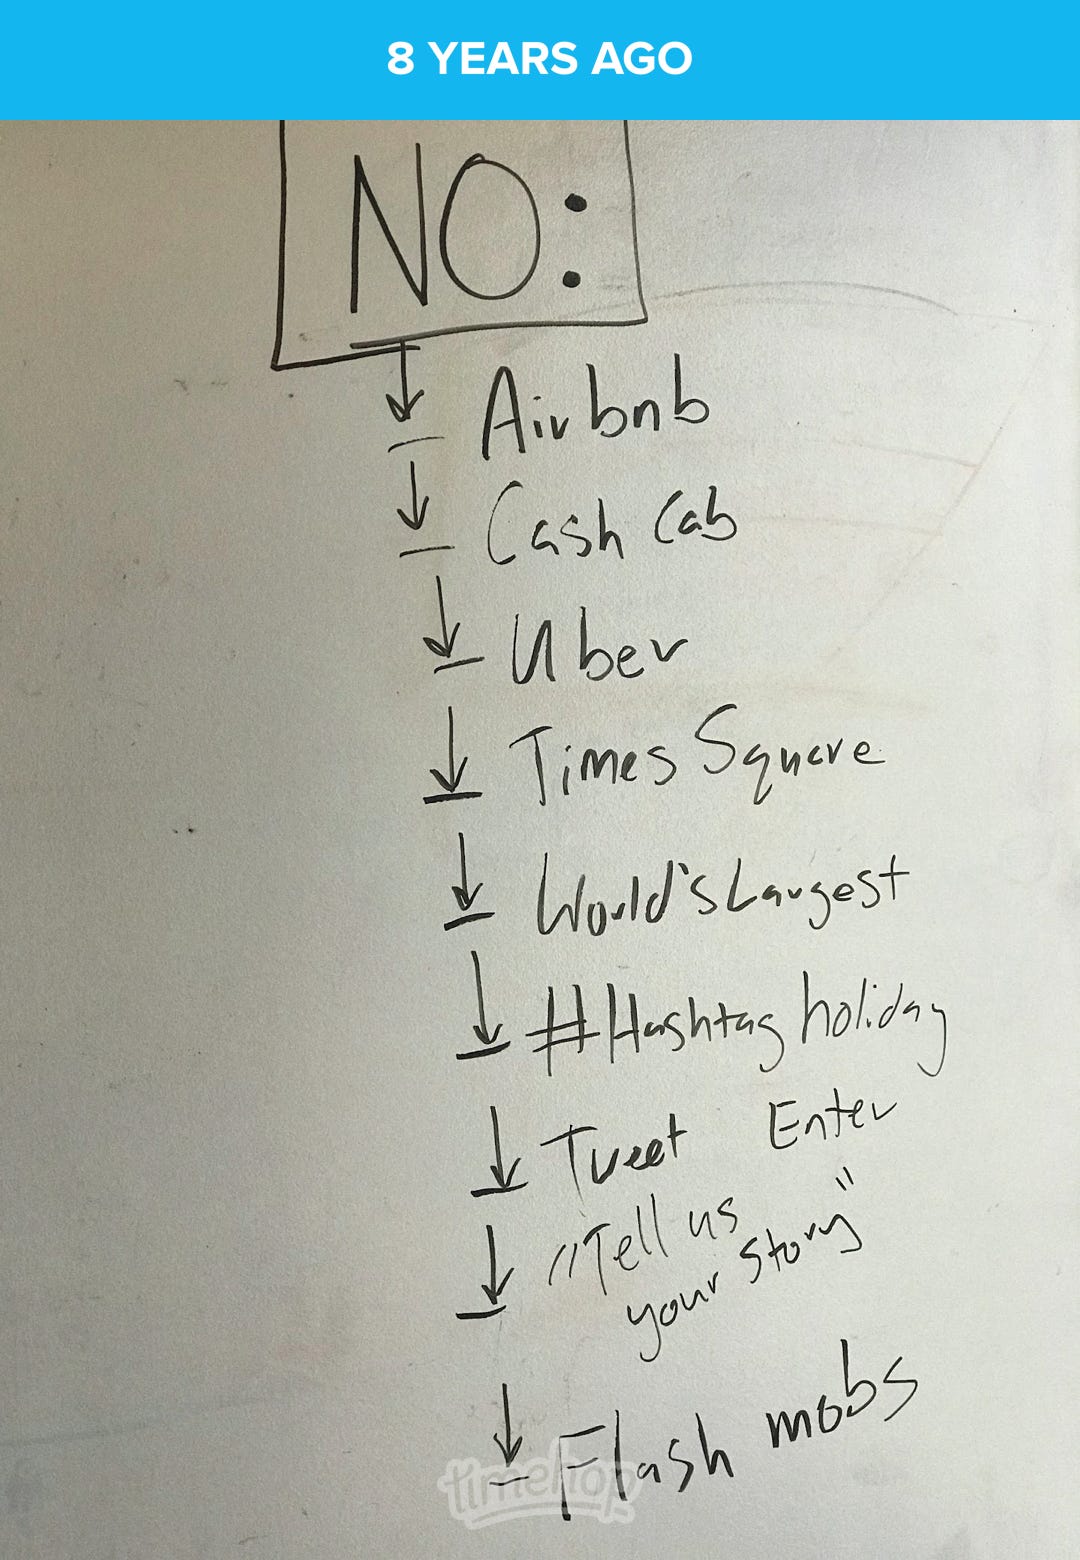 8 YEARS AGO
NO:
Airbnb
Cash Cab
Uber
Times Square
World's Largest
#Hashtag holiday
Tweet Enter
"Tell us
your story"
Flash mobs
timehop